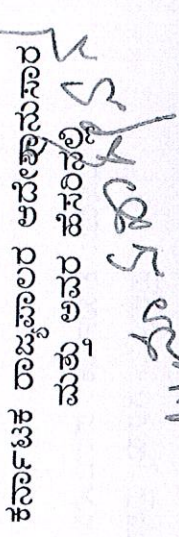 ಕರ್ನಾಟಕ ರಾಜ್ಯಪಾಲರ ಆದೇಶಾನುಸಾರ
ಮತ್ತು ಅವರ ಹೆಸರಿನಲ್ಲಿ